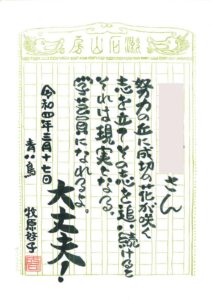 漱石山房
さん
努力の丘に成功の花が咲く
志を立てその志を追い続けると
それは現実となる。
学芸員になれるよ。
大丈夫！
令和四年三月十七日
青い鳥
牧原好子